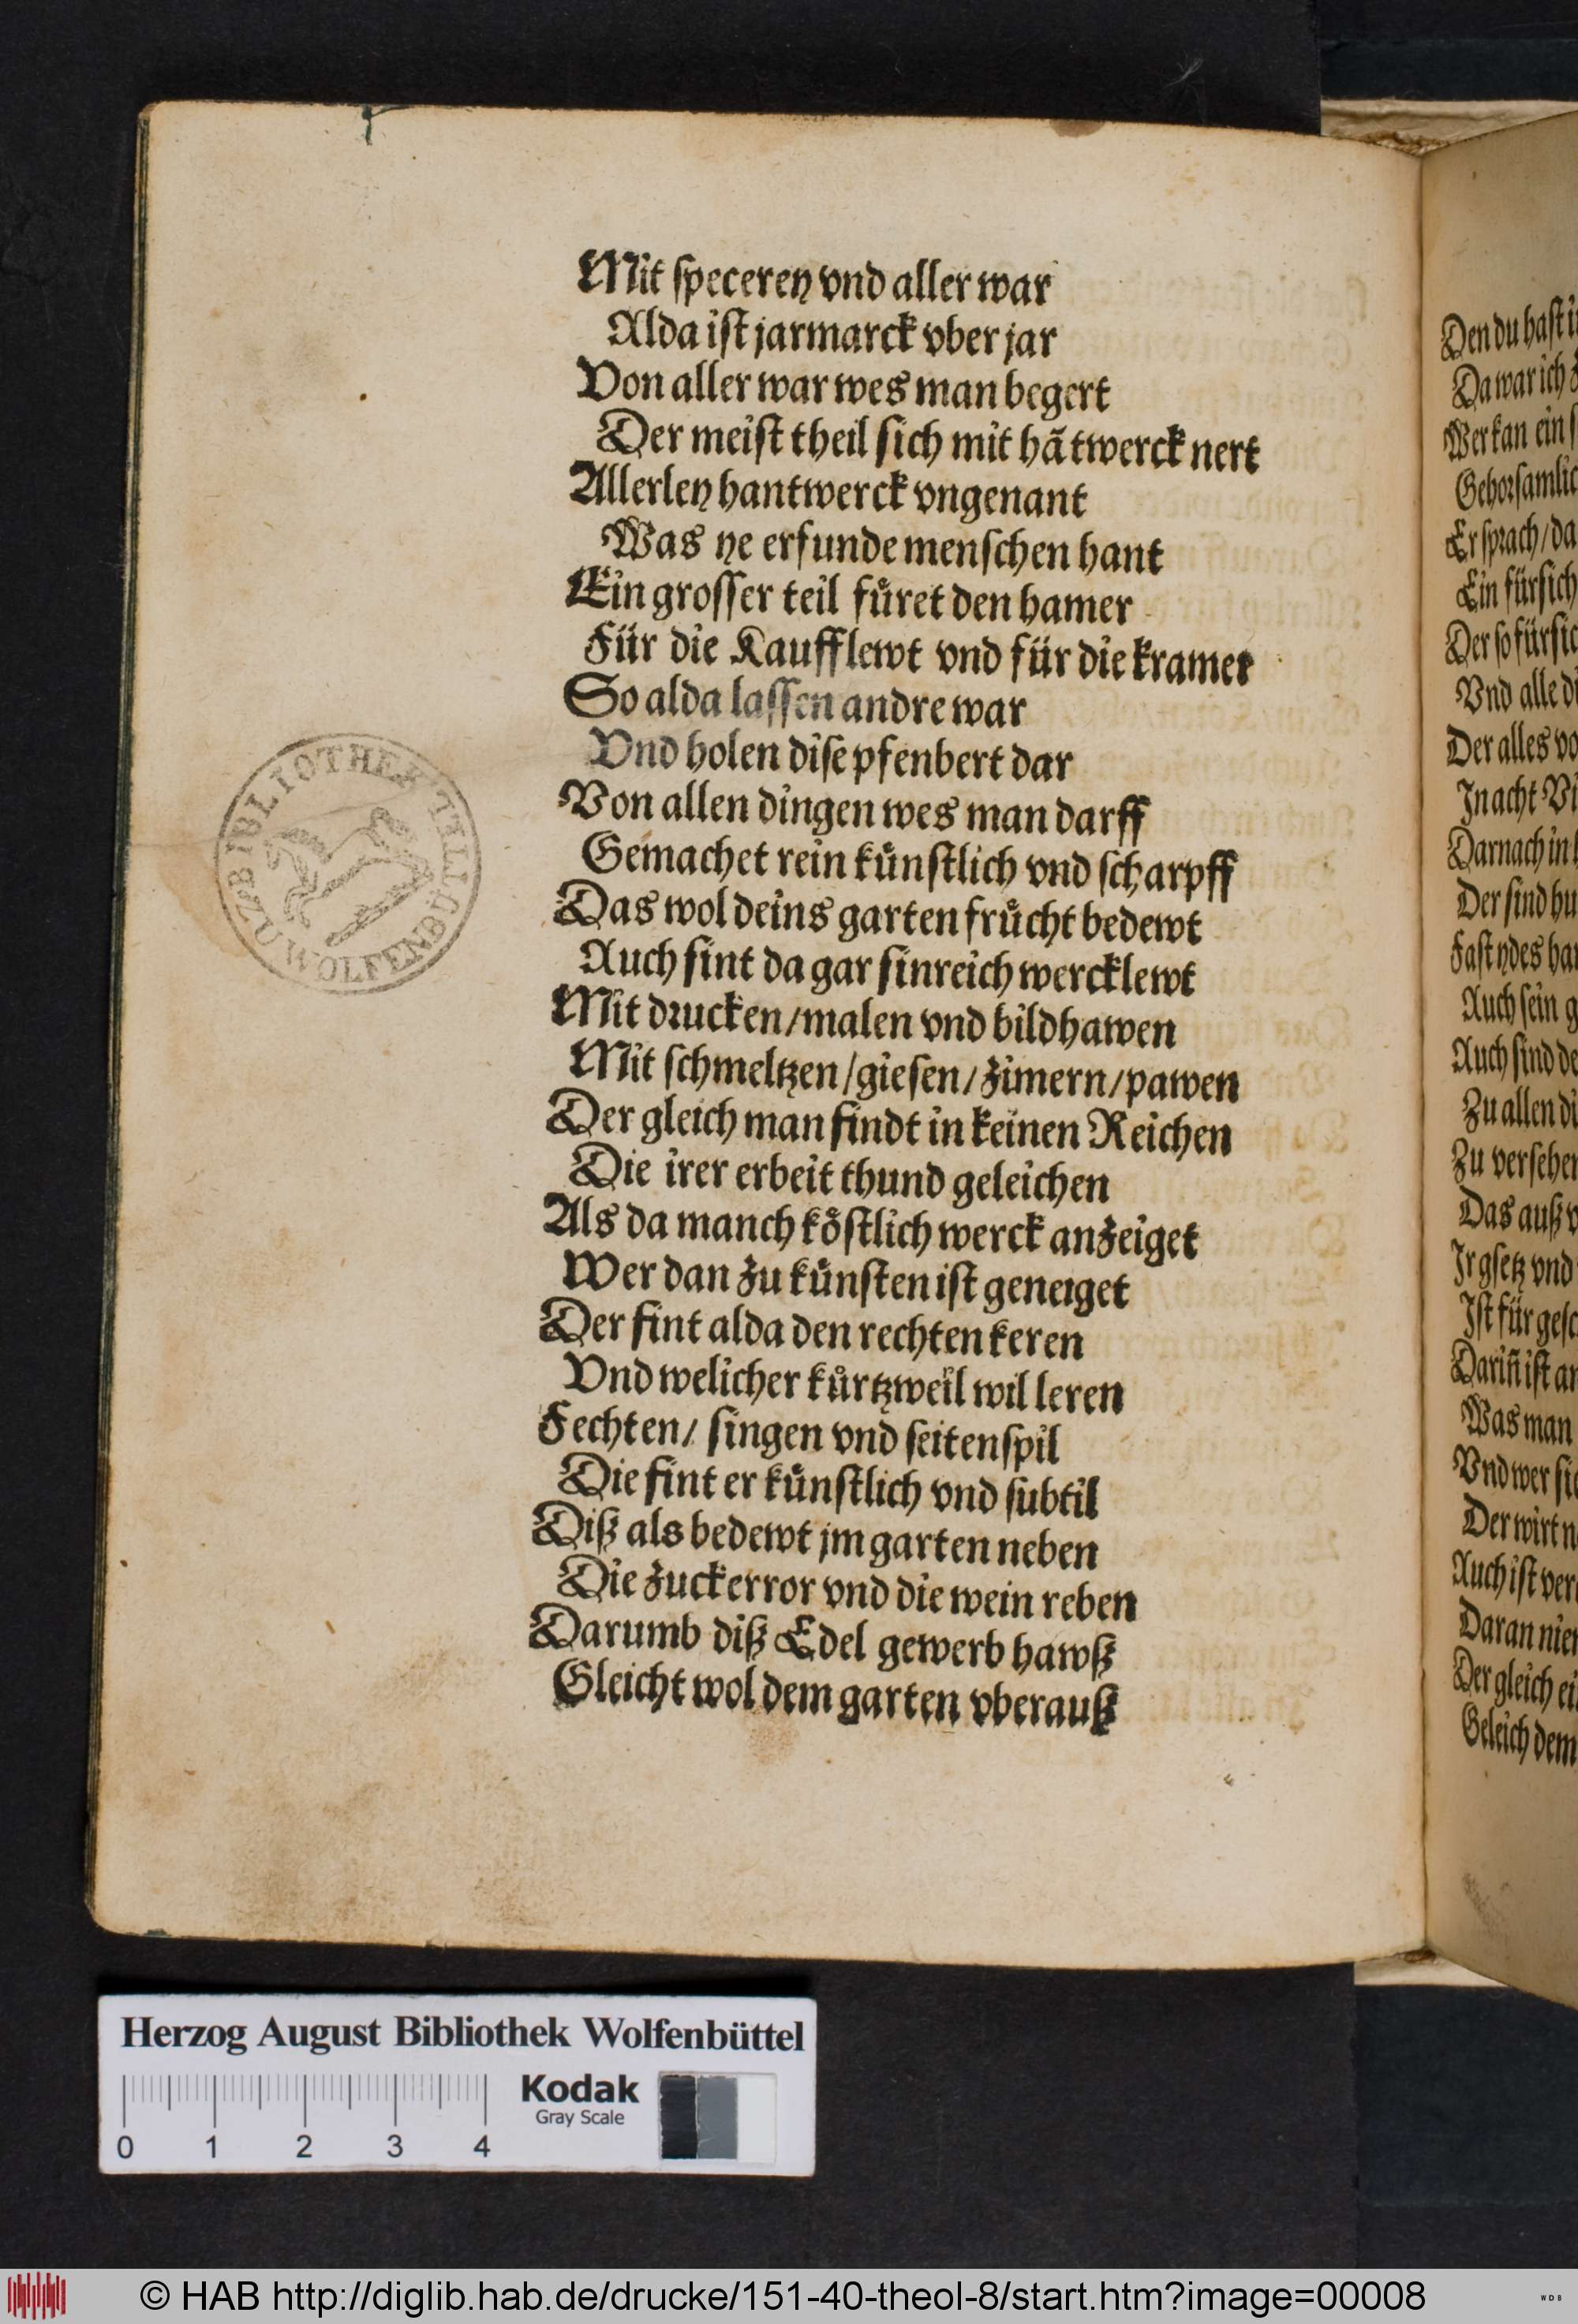 Mit specerey vnd aller war
Alda ist jarmarck vber jar
Von aller war wes man begert
Der meist theil sich mit hãtwerck nert
Allerley hantwerck vngenant
Was ye erfunde menschen hant
Ein grosser teil fuͤret den hamer
Für die Kaufflewt vnd für die kramer
So alda lassen andre war
Vnd holen dise pfenbert dar
Von allen dingen wes man darff
Gemachet rein kuͤnstlich vnd scharpff
Das wol deins garten fruͤcht bedewt
Auch sint da gar sinreich wercklewt
Mit drucken/malen vnd bildhawen
Mit schmeltzen/giesen/zimern/pawen
Der gleich man findt in keinen Reichen
Die irer erbeit thund geleichen
Als da manch koͤstlich werck anzeiget
Wer dan zu kuͤnsten ist geneiget
Der fint alda den rechten keren
Vnd welicher kuͤrtzweil wil leren
Fechten/ singen vnd seitenspil
Die fint er kuͤnstlich vnd subtil
Diß als bedewt jm garten neben
Die zuckerror vnd die wein reben
Darumb diß Edel gewerb hawß
Gleicht wol dem garten vberauß
BIBLIOTHEK ZU WOLFENBÜTTEL
Den du hast
Da war ich
Wer kan ein
Er sprach/da
Ein fürsich
Der so fürsic
Vnd alle di
Der alles vo
In acht Vi
Darnach in
Der sind hu
Fast ydes ha
Auch sein g
Auch sind de
Zu allen di
Zu versehen
Das auß v
Ir gsetz vnd
Ist für gesc
Dariñ ist an
Was man
Vnd wer sic
Der wirt n
Auch ist ver
Daran nie
Der gleich ei
Geleich dem
Herzog August Bibliothek Wolfenbüttel
Kodak
Gray Scale
0 1 2 3 4
© HAB http://diglib.hab.de/drucke/151-40-theol-8/start.htm?image=00008
WDB